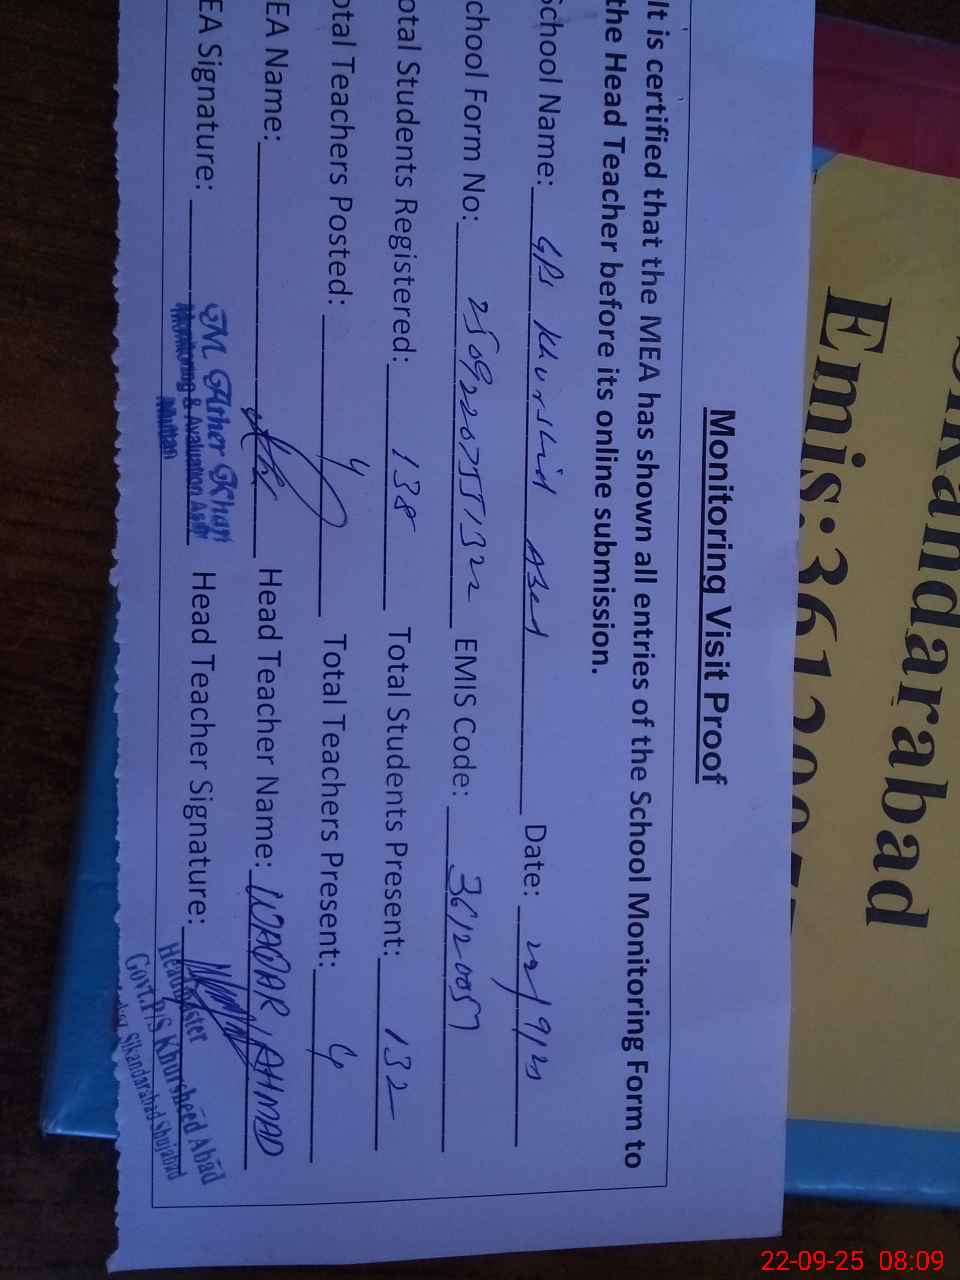 Monitoring Visit Proof
It is certified that the MEA has shown all entries of the School Monitoring Form to
the Head Teacher before its online submission.
School Name: GPS Khurshid Abad Date: 22/9/25
chool Form No: EMIS Code: 36120057
otal Students Registered: 138 Total Students Present: 132
otal Teachers Posted: 4 Total Teachers Present: 4
EA Name: Head Teacher Name: WAQAR AHMAD
EA Signature: Head Teacher Signature:
M Ather Khan
Monitoring & Evaluation Asstt
Multan
Headmaster
Govt.P/S Khursheed Abad
Sikandarabad Shujabad
Sikandarabad
Emis:3612005
22-09-25 08:09